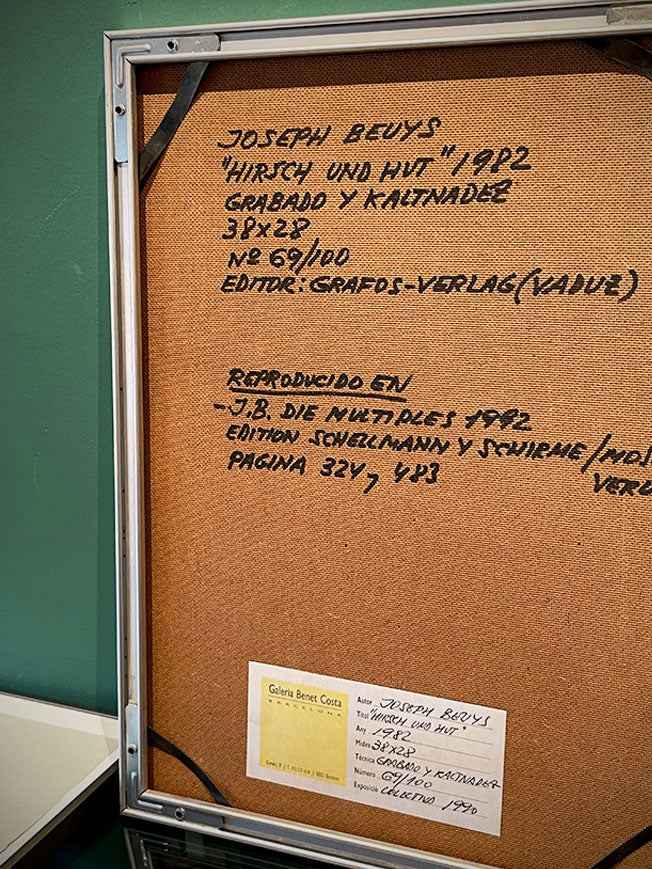 JOSEPH BEUYS
"HIRSCH UND HUT" 1982
GRABADO Y KALTNADEZ
38x28
Nº 69/100
EDITOR: GRAFOS-VERLAG (VADUZ)
REPRODUCIDO EN
- J.B. DIE MULTIPLES 1992
EDITION SCHELLMANN Y SCHIRME/MOS
VERL
PAGINA 324, 483
Galeria Benet Costa
BARCELONA
Autor JOSEPH BEUYS
Títol "HIRSCH UND HUT"
Any 1982
Mides 38x28
Tècnica GRABADO Y KALTNADEZ
Número 69/100
Exposició COLECTIVA 1990